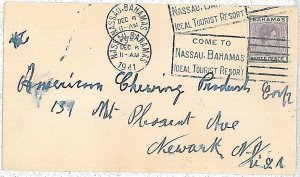 NASSAU, BAHAMAS
DEC 6
11-AM
NASSAU, BAHAMAS
DEC 6
11-AM
1941
NASSAU, BAHAMAS
IDEAL TOURIST RESORT
COME TO
NASSAU, BAHAMAS
IDEAL TOURIST RESORT
BAHAMAS
American Chewing Products Corp
134 Mt Pleasent Ave
Newark N.J.
U.S.A